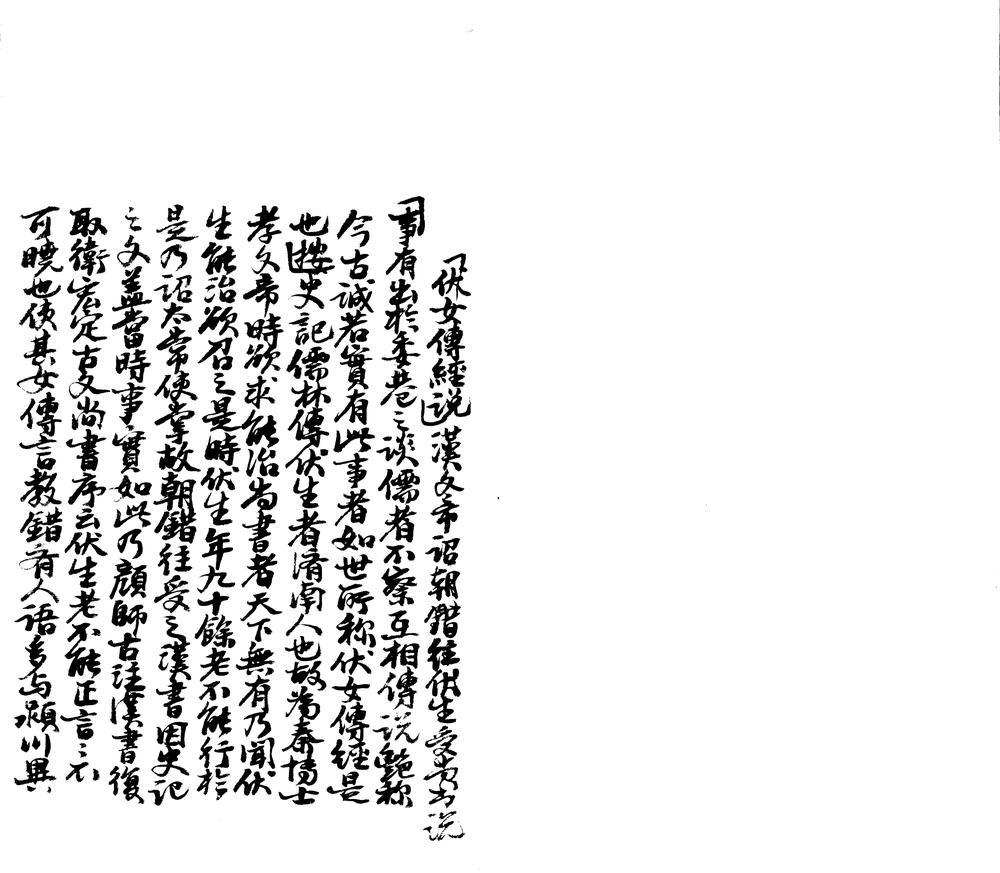 伏女傳經説漢文帝詔朝錯往伏生受尚書説
事有出於委巷之談儒者不察互相傳説艶称
今古誠若實有此事者如世所称伏女傳經是
也按史記儒林傳伏生者濟南人也故為秦博士
孝文帝時欲求能治尚書者天下無有乃聞伏
生能治欲召之是時伏生年九十餘老不能行於
是乃詔太常使掌故朝錯往受之漢書因史記
之文蓋當時事實如此乃顔師古註漢書復
取衛宏定古文尚書序云伏生老不能正言言不
可曉也使其女傳言教錯齊人語多与潁川異